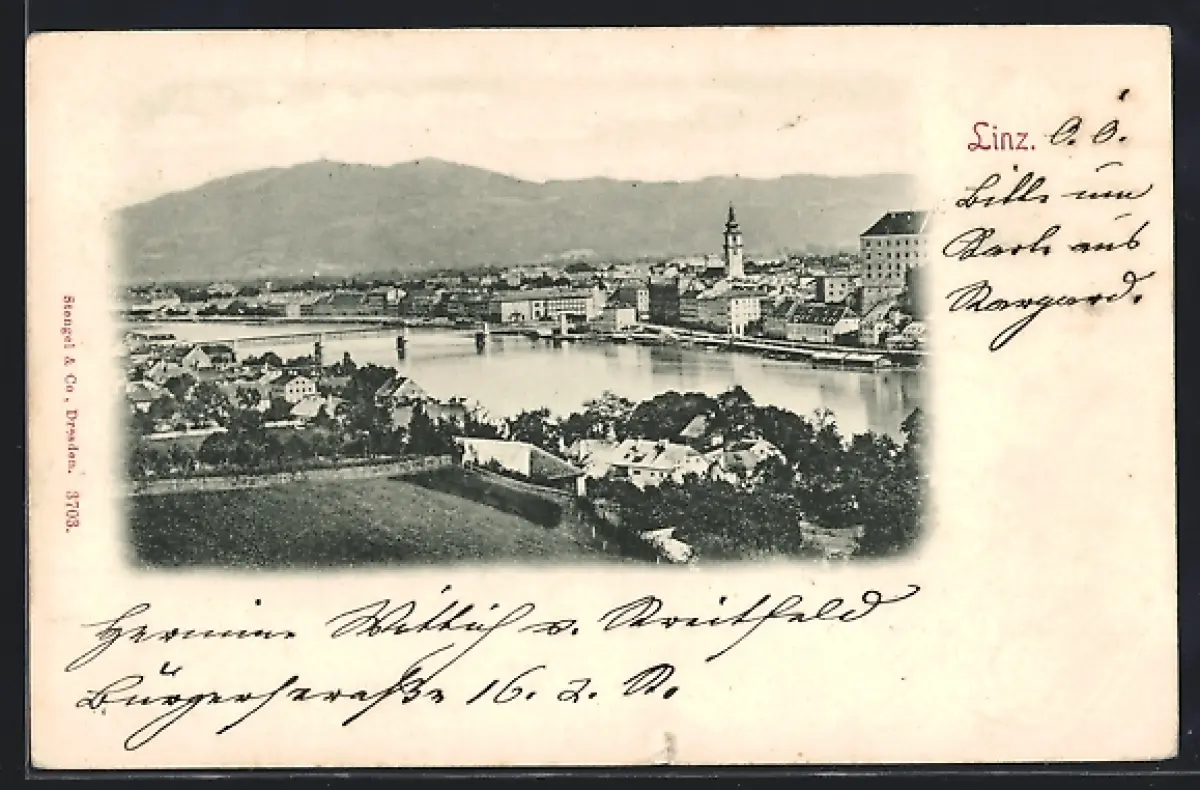 Linz. O. Ö.
Bitte um
Karte aus
Stargard.
Stengel & Co., Dresden. 3703.
Hermine Wittich v. Streitfeld
Bürgerstraße 16. 2. St.